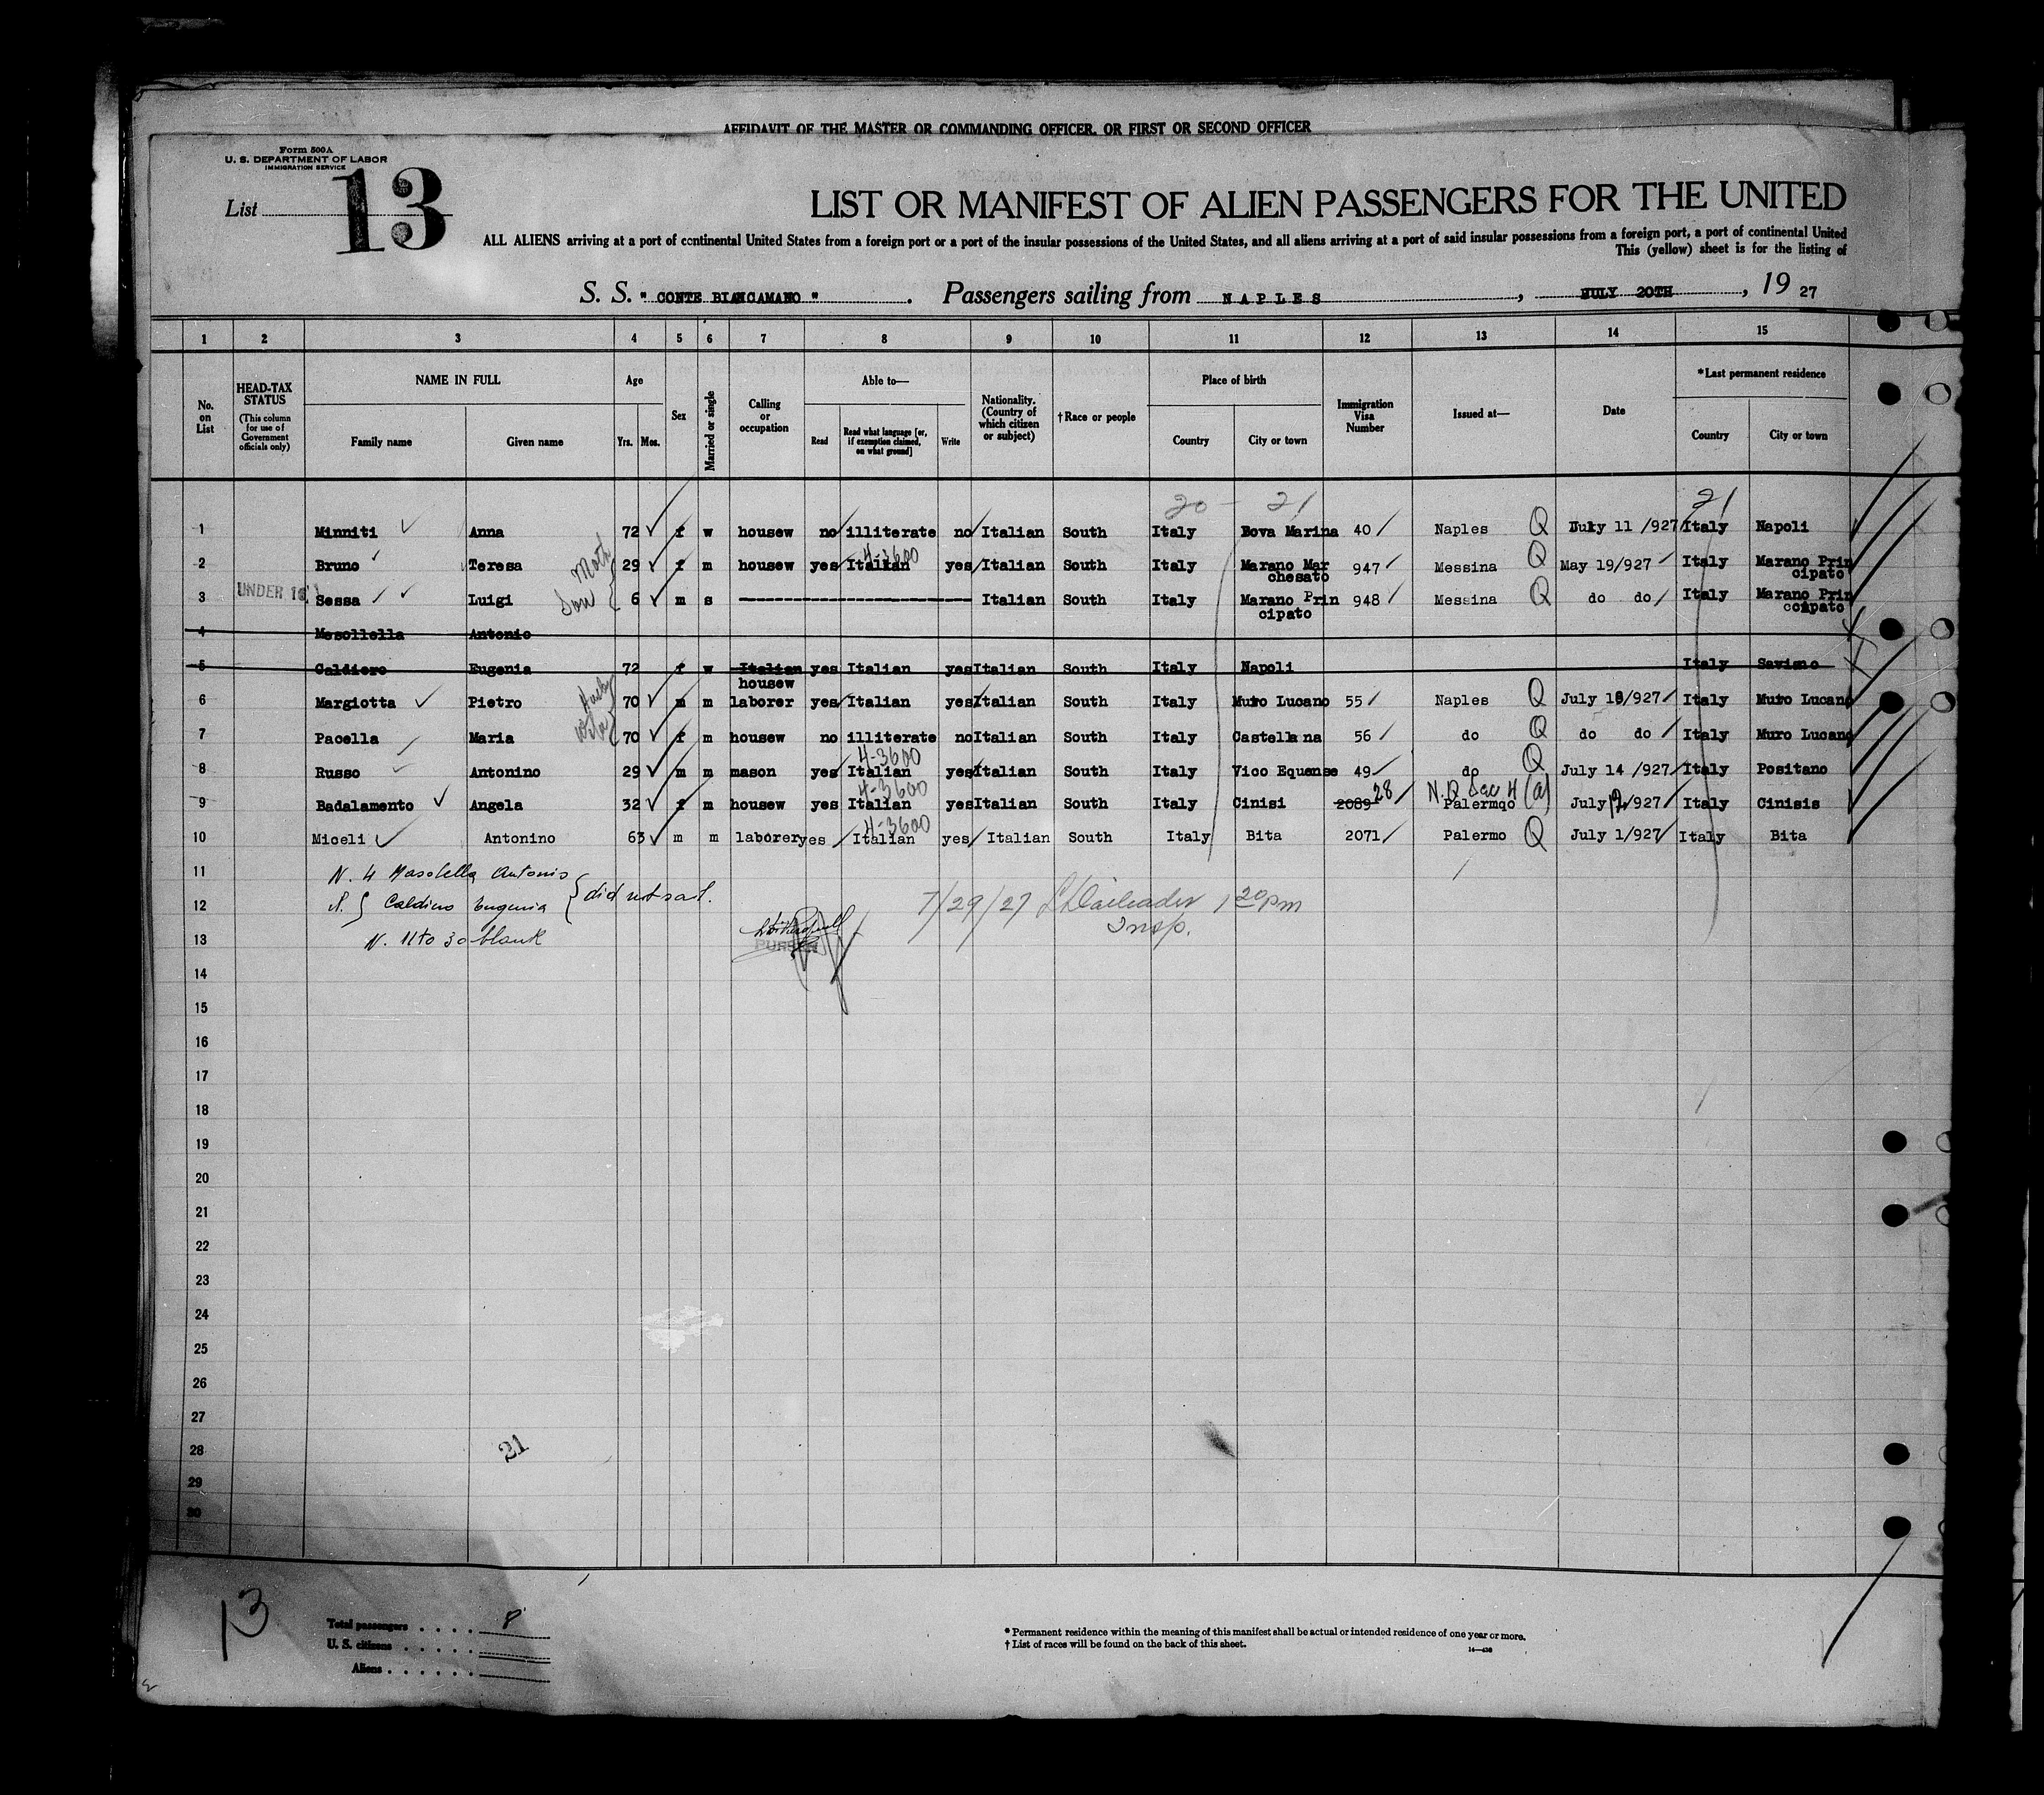 AFFIDAVIT OF THE MASTER OR COMMANDING OFFICER, OR FIRST OR SECOND OFFICER
Form 500A
U. S. DEPARTMENT OF LABOR
IMMIGRATION SERVICE
List 13
LIST OR MANIFEST OF ALIEN PASSENGERS FOR THE UNITED
ALL ALIENS arriving at a port of continental United States from a foreign port or a port of the insular possessions of the United States, and all aliens arriving at a port of said insular possessions from a foreign port, a port of continental United
This (yellow) sheet is for the listing of
S. S. " CONTE BIANCAMANO " . Passengers sailing from NAPLES , JULY 20TH , 19 27
1 2 3 4 5 6 7 8 9 10 11 12 13 14 15
No. on List
HEAD-TAX STATUS (This column for use of Government officials only)
NAME IN FULL Family name Given name
Age Yrs. Mos.
Sex
Married or single
Calling or occupation
Able to— Read Read what language [or, if exemption claimed, on what ground] Write
Nationality. (Country of which citizen or subject)
† Race or people
Place of birth Country City or town
Immigration Visa Number
Issued at—
Date
* Last permanent residence Country City or town
20 - 21 21
1 Minniti Anna 72 f w housew no illiterate no Italian South Italy Bova Marina 40 Naples Q July 11 /927 Italy Napoli
4-3600
2 Bruno Teresa Moth 29 f m housew yes Italian yes Italian South Italy Marano Mar chesato 947 Messina Q May 19/927 Italy Marano Prin cipato
3 UNDER 16 Sessa Luigi Son 6 m s Italian South Italy Marano Prin cipato 948 Messina Q do do Italy Marano Prin cipato
4 Mesollella Antonio
5 Caldiero Eugenia 72 f w Italian housew yes Italian yes Italian South Italy Napoli Italy Saviano
6 Margiotta Pietro Husb 70 m m laborer yes Italian yes Italian South Italy Muro Lucano 55 Naples Q July 18/927 Italy Muro Lucano
7 Pacella Maria Wife 70 f m housew no illiterate no Italian South Italy Castellana 56 do Q do do Italy Muro Lucano
4-3600
8 Russo Antonino 29 m m mason yes Italian yes Italian South Italy Vico Equense 49 do Q July 14 /927 Italy Positano
4-3600
9 Badalamento Angela 32 f m housew yes Italian yes Italian South Italy Cinisi 2089 28 N.Q Sec 4 (a) Palermo July 12/927 Italy Cinisis
4-3600
10 Miceli Antonino 63 m m laborer yes Italian yes Italian South Italy Bita 2071 Palermo Q July 1/927 Italy Bita
11 N. 4 Masolella Antonio
12 N. 5 Caldiero Eugenia } did not sail.
7/29/27 1 20 pm
Insp.
13 N. 11 to 30 blank
PURSER
14
15
16
17
18
19
20
21
22
23
24
25
26
27
28
21
29
30
13
Total passengers 8
U. S. citizens
Aliens
* Permanent residence within the meaning of this manifest shall be actual or intended residence of one year or more.
† List of races will be found on the back of this sheet.